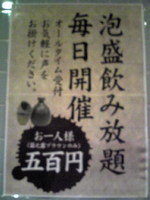 泡盛飲み放題
毎日開催
オールタイム受付
お気軽に声を
お掛けください。
お一人様
五百円